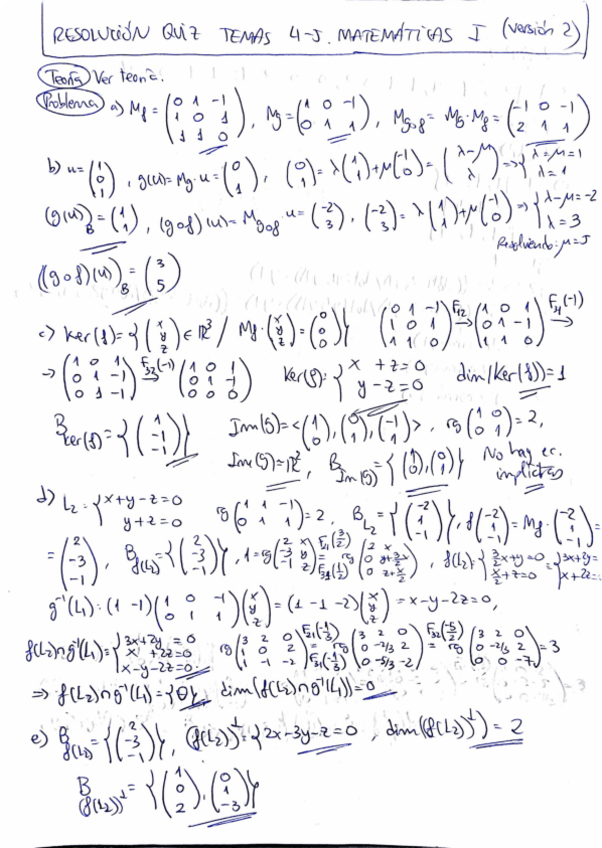 RESOLUCIÓN QUIZ TEMAS 4-5. MATEMÁTICAS I (versión 2)
Teoría Ver teoría.
Problema a) M_f = (0 1 -1; 1 0 1; 1 1 0), M_g = (1 0 -1; 0 1 1), M_gof = M_g · M_f = (-1 0 -1; 2 1 1)
b) u = (1; 0; 1), g(u) = M_g · u = (0; 1), (0; 1) = λ(1; 1) + μ(-1; 0) = (λ-μ; λ) ⇒ {λ=μ=1; λ=1
(g(u))_B = (1; 1), (gof)(u) = M_gof · u = (-2; 3), (-2; 3) = λ(1; 1) + μ(-1; 0) ⇒ {λ-μ=-2; λ=3
Resolviendo: μ=5
((gof)(u))_B = (3; 5)
c) Ker(f) = {(x; y; z) ∈ ℝ³ / M_f · (x; y; z) = (0; 0; 0)} (0 1 -1; 1 0 1; 1 1 0) F12→ (1 0 1; 0 1 -1; 1 1 0) F31(-1)→
→ (1 0 1; 0 1 -1; 0 1 -1) F32(-1)→ (1 0 1; 0 1 -1; 0 0 0) Ker(f): {x + z = 0; y - z = 0 dim(Ker(f)) = 1
B_Ker(f) = {(1; -1; -1)} Im(g) = <(1; 0), (0; 1), (-1; 1)>, rg(1 0; 0 1) = 2,
Im(g) = ℝ², B_Im(g) = {(1; 0), (0; 1)} No hay ec. implícitas
d) L2: {x+y-z=0; y+z=0 rg(1 1 -1; 0 1 1) = 2, B_L2 = {(-2; 1; -1)}, f(-2; 1; -1) = M_f · (-2; 1; -1) =
= (2; -3; -1), B_f(L2) = {(2; -3; -1)}, 1 = rg(2 x; -3 y; -1 z) F21(3/2) = F31(1/2) rg(2 x; 0 y+3/2x; 0 z+x/2), f(L2): {3/2x+y=0; x/2+z=0 = {3x+2y=; x+2z=
g⁻¹(L1): (1 -1)(1 0 -1; 0 1 1)(x; y; z) = (1 -1 -2)(x; y; z) = x-y-2z=0,
f(L2)∩g⁻¹(L1) = {3x+2y = 0; x + 2z=0; x-y-2z=0 rg(3 2 0; 1 0 2; 1 -1 -2) F21(-1/3) = F31(-1/3) rg(3 2 0; 0 -2/3 2; 0 -5/3 -2) F32(-5/2) = rg(3 2 0; 0 -2/3 2; 0 0 -7) = 3
⇒ f(L2)∩g⁻¹(L1) = {θ}, dim(f(L2)∩g⁻¹(L1)) = 0
e) B_f(L2) = {(2; -3; -1)}, (f(L2))^⊥ = {2x-3y-z=0, dim(f(L2)^⊥) = 2
B_(f(L2))^⊥ = {(1; 0; 2), (0; 1; -3)}